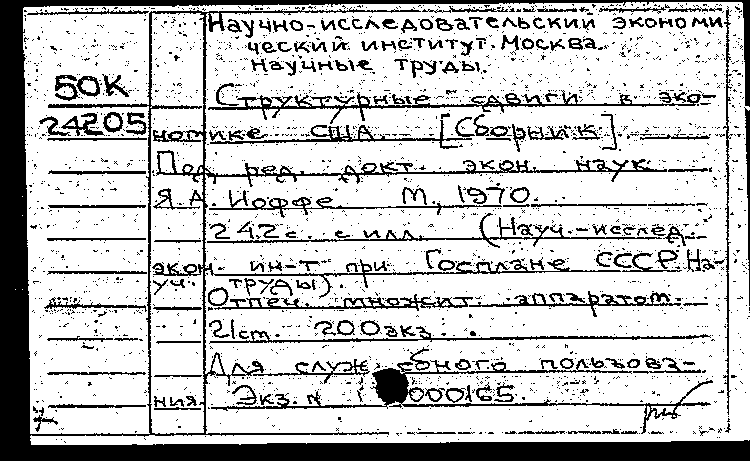 Научно-исследовательский экономи-
ческий институт. Москва.
Научные труды.
50К
24205
Структурные сдвиги в эко-
номике США. [Сборник]
Под ред. докт. экон. наук
Я.А. Иоффе. М., 1970.
242с. с илл. (Науч.-исслед.
экон. ин-т при Госплане СССР. На-
уч. труды).
Отпеч. множит. аппаратом.
21см. 200экз.
Для служебного пользова-
ния. Экз. N 000165.